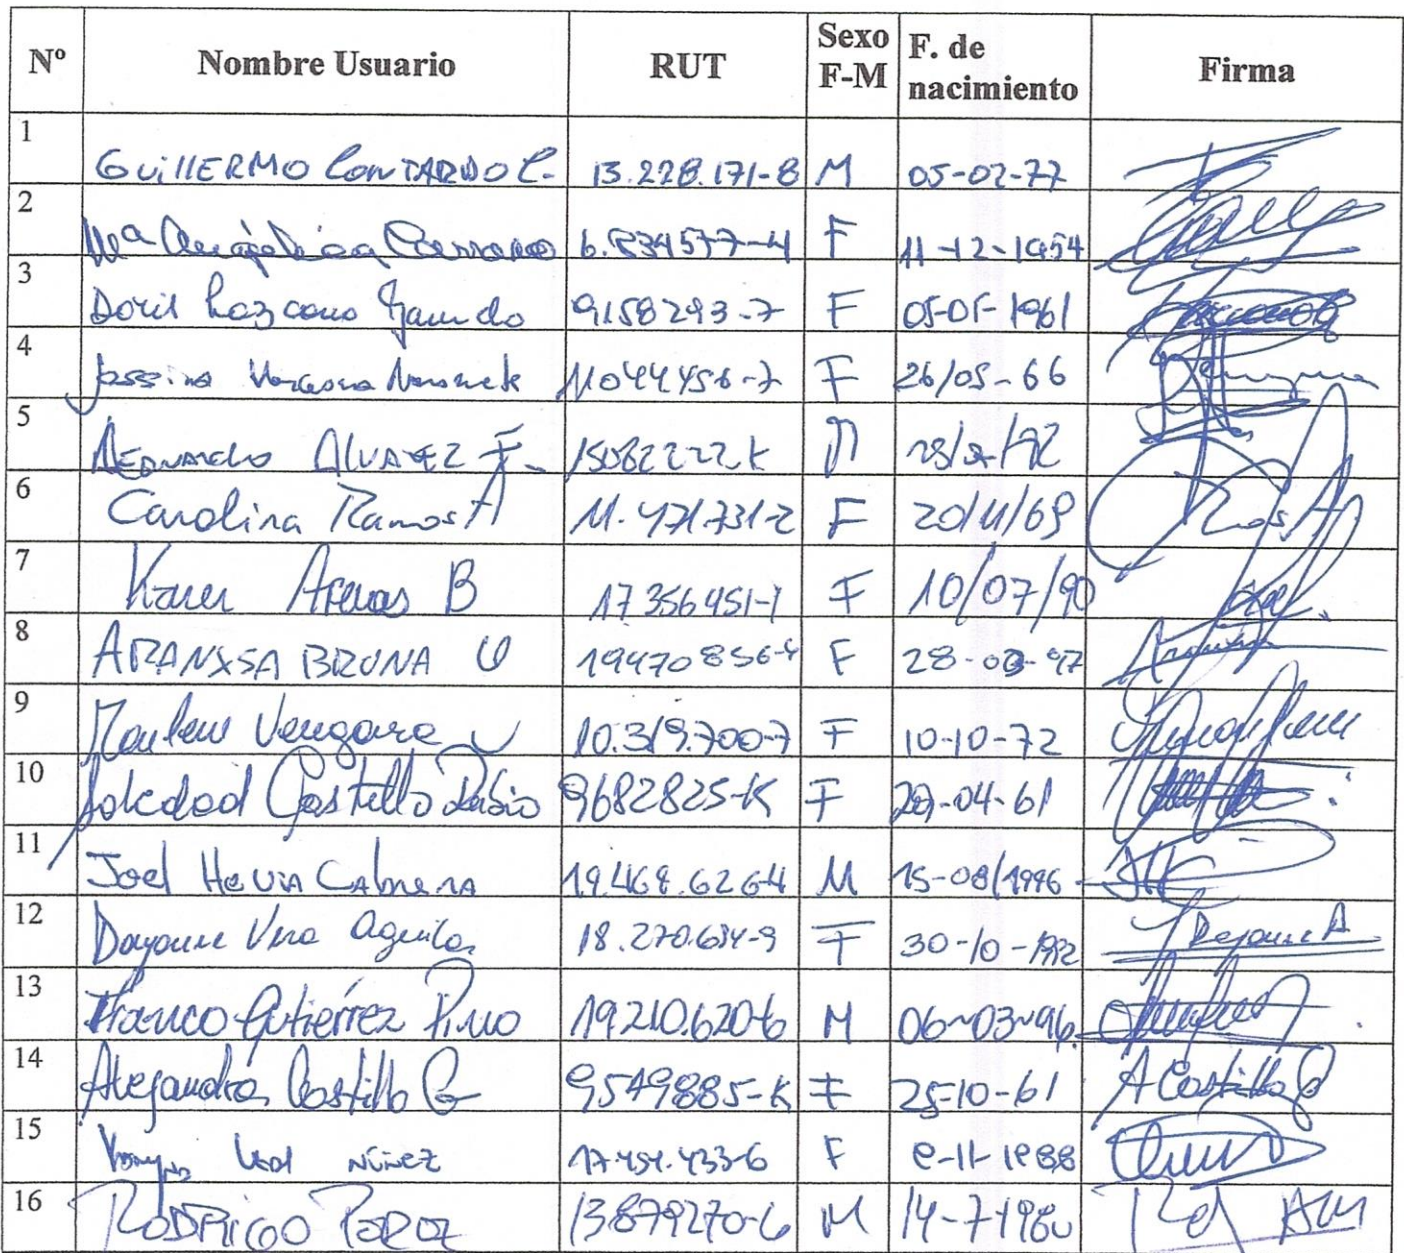 Nº Nombre Usuario RUT Sexo F-M F. de nacimiento Firma
1 GUILLERMO CONTARDO C. 13.228.171-8 M 05-02-77
2 Mª Angélica 6.834577-4 F 11-12-1954
3 Doris Lazcano 9.158293-7 F 05-05-1961
4 11044456-7 F 26/05-66
5 ALVAREZ F. 15082222-K M
6 Carolina Ramos A 11.471.731-2 F 20/11/69
7 Karen Arenas B 17356451-1 F 10/07/90
8 ARANXSA BRUNA 19470856-4 F
9 Marlene Vergara V 10.319.700-7 F 10-10-72
10 Soledad Castillo Rubio 9682825-K F 29-04-61
11 Joel Hevia Cabrera 19.468.626-4 M 15-08/1996
12 Dayanne Vera Aguilar 18.270.634-9 F 30-10-1992 Dayanne A
13 Franco Gutiérrez Pino 19210.620-6 M 06-03-96.
14 Alejandra Castillo G 9549885-K F 25-10-61 A Castillo G
15 Leal NÚÑEZ 17.454.433-6 F 8-11-1988
16 RODRIGO 13879270-6 M 14-7-1980